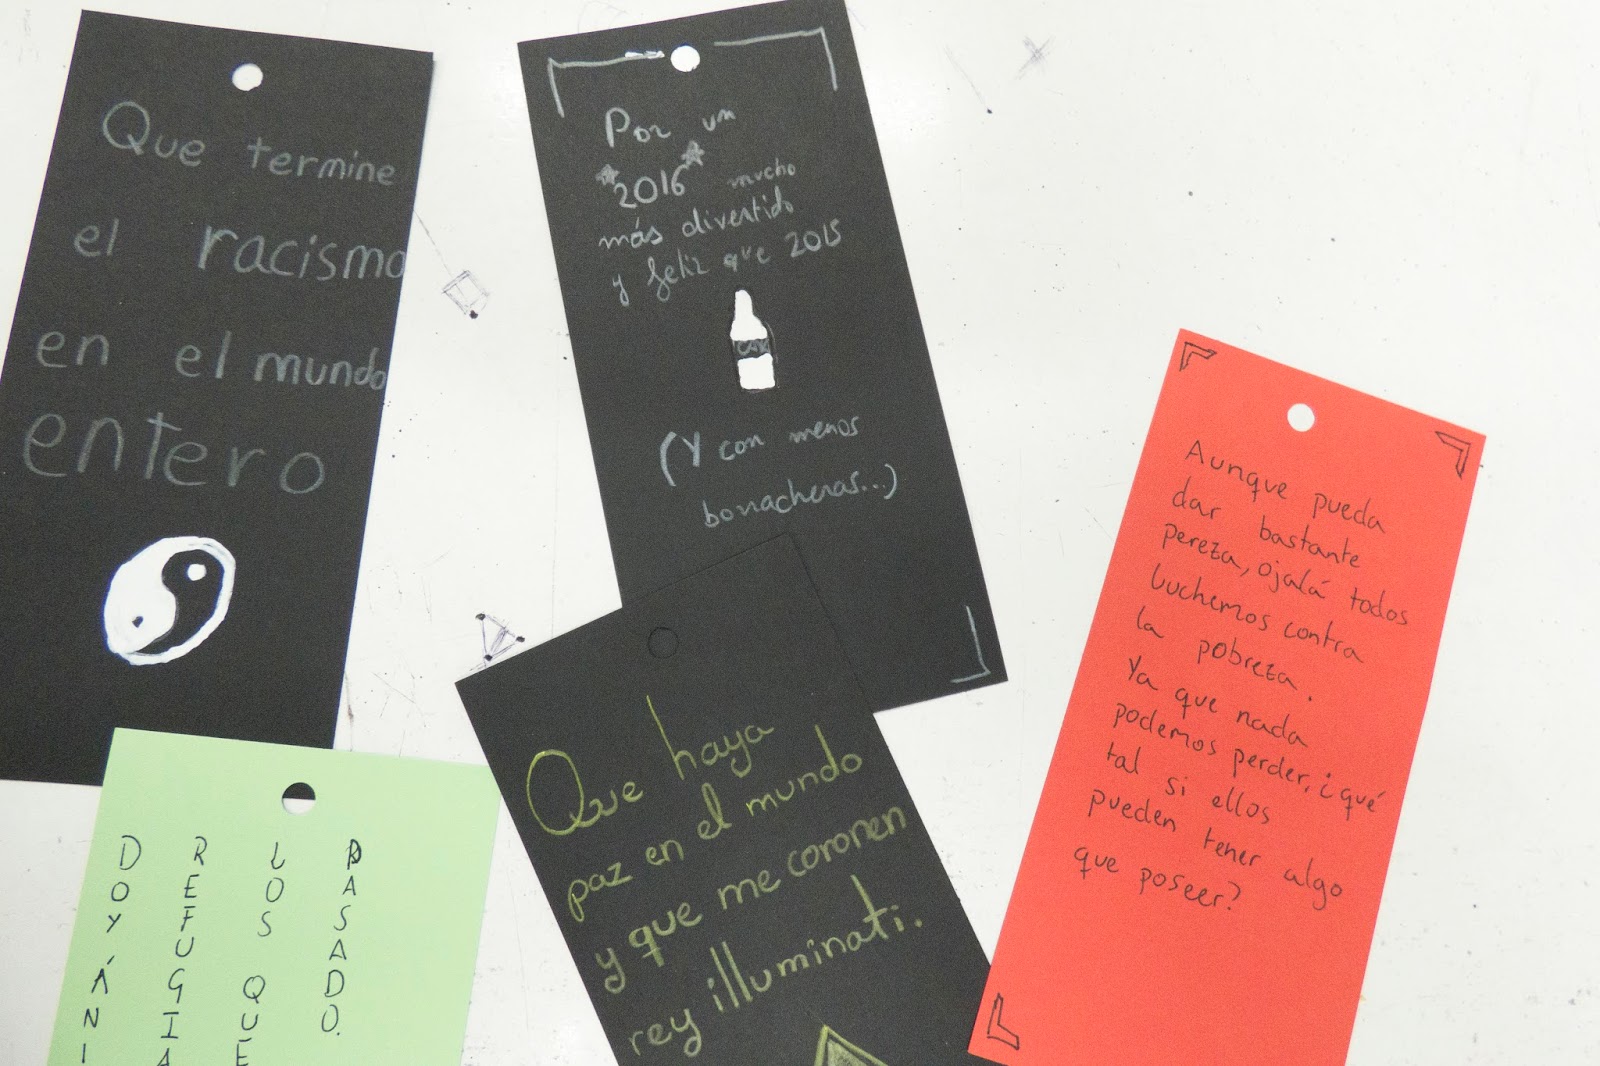 Que termine
el racismo
en el mundo
entero
Por un
2016 mucho
más divertido
y feliz que 2015
(Y con menos
borracheras...)
Que haya
paz en el mundo
y que me coronen
rey illuminati.
Aunque pueda
dar bastante
pereza, ojalá todos
luchemos contra
la pobreza.
Ya que nada
podemos perder, ¿qué
tal si ellos
pueden tener algo
que poseer?
DOY ÁNI
REFUGIA
LOS QUE
PASADO.